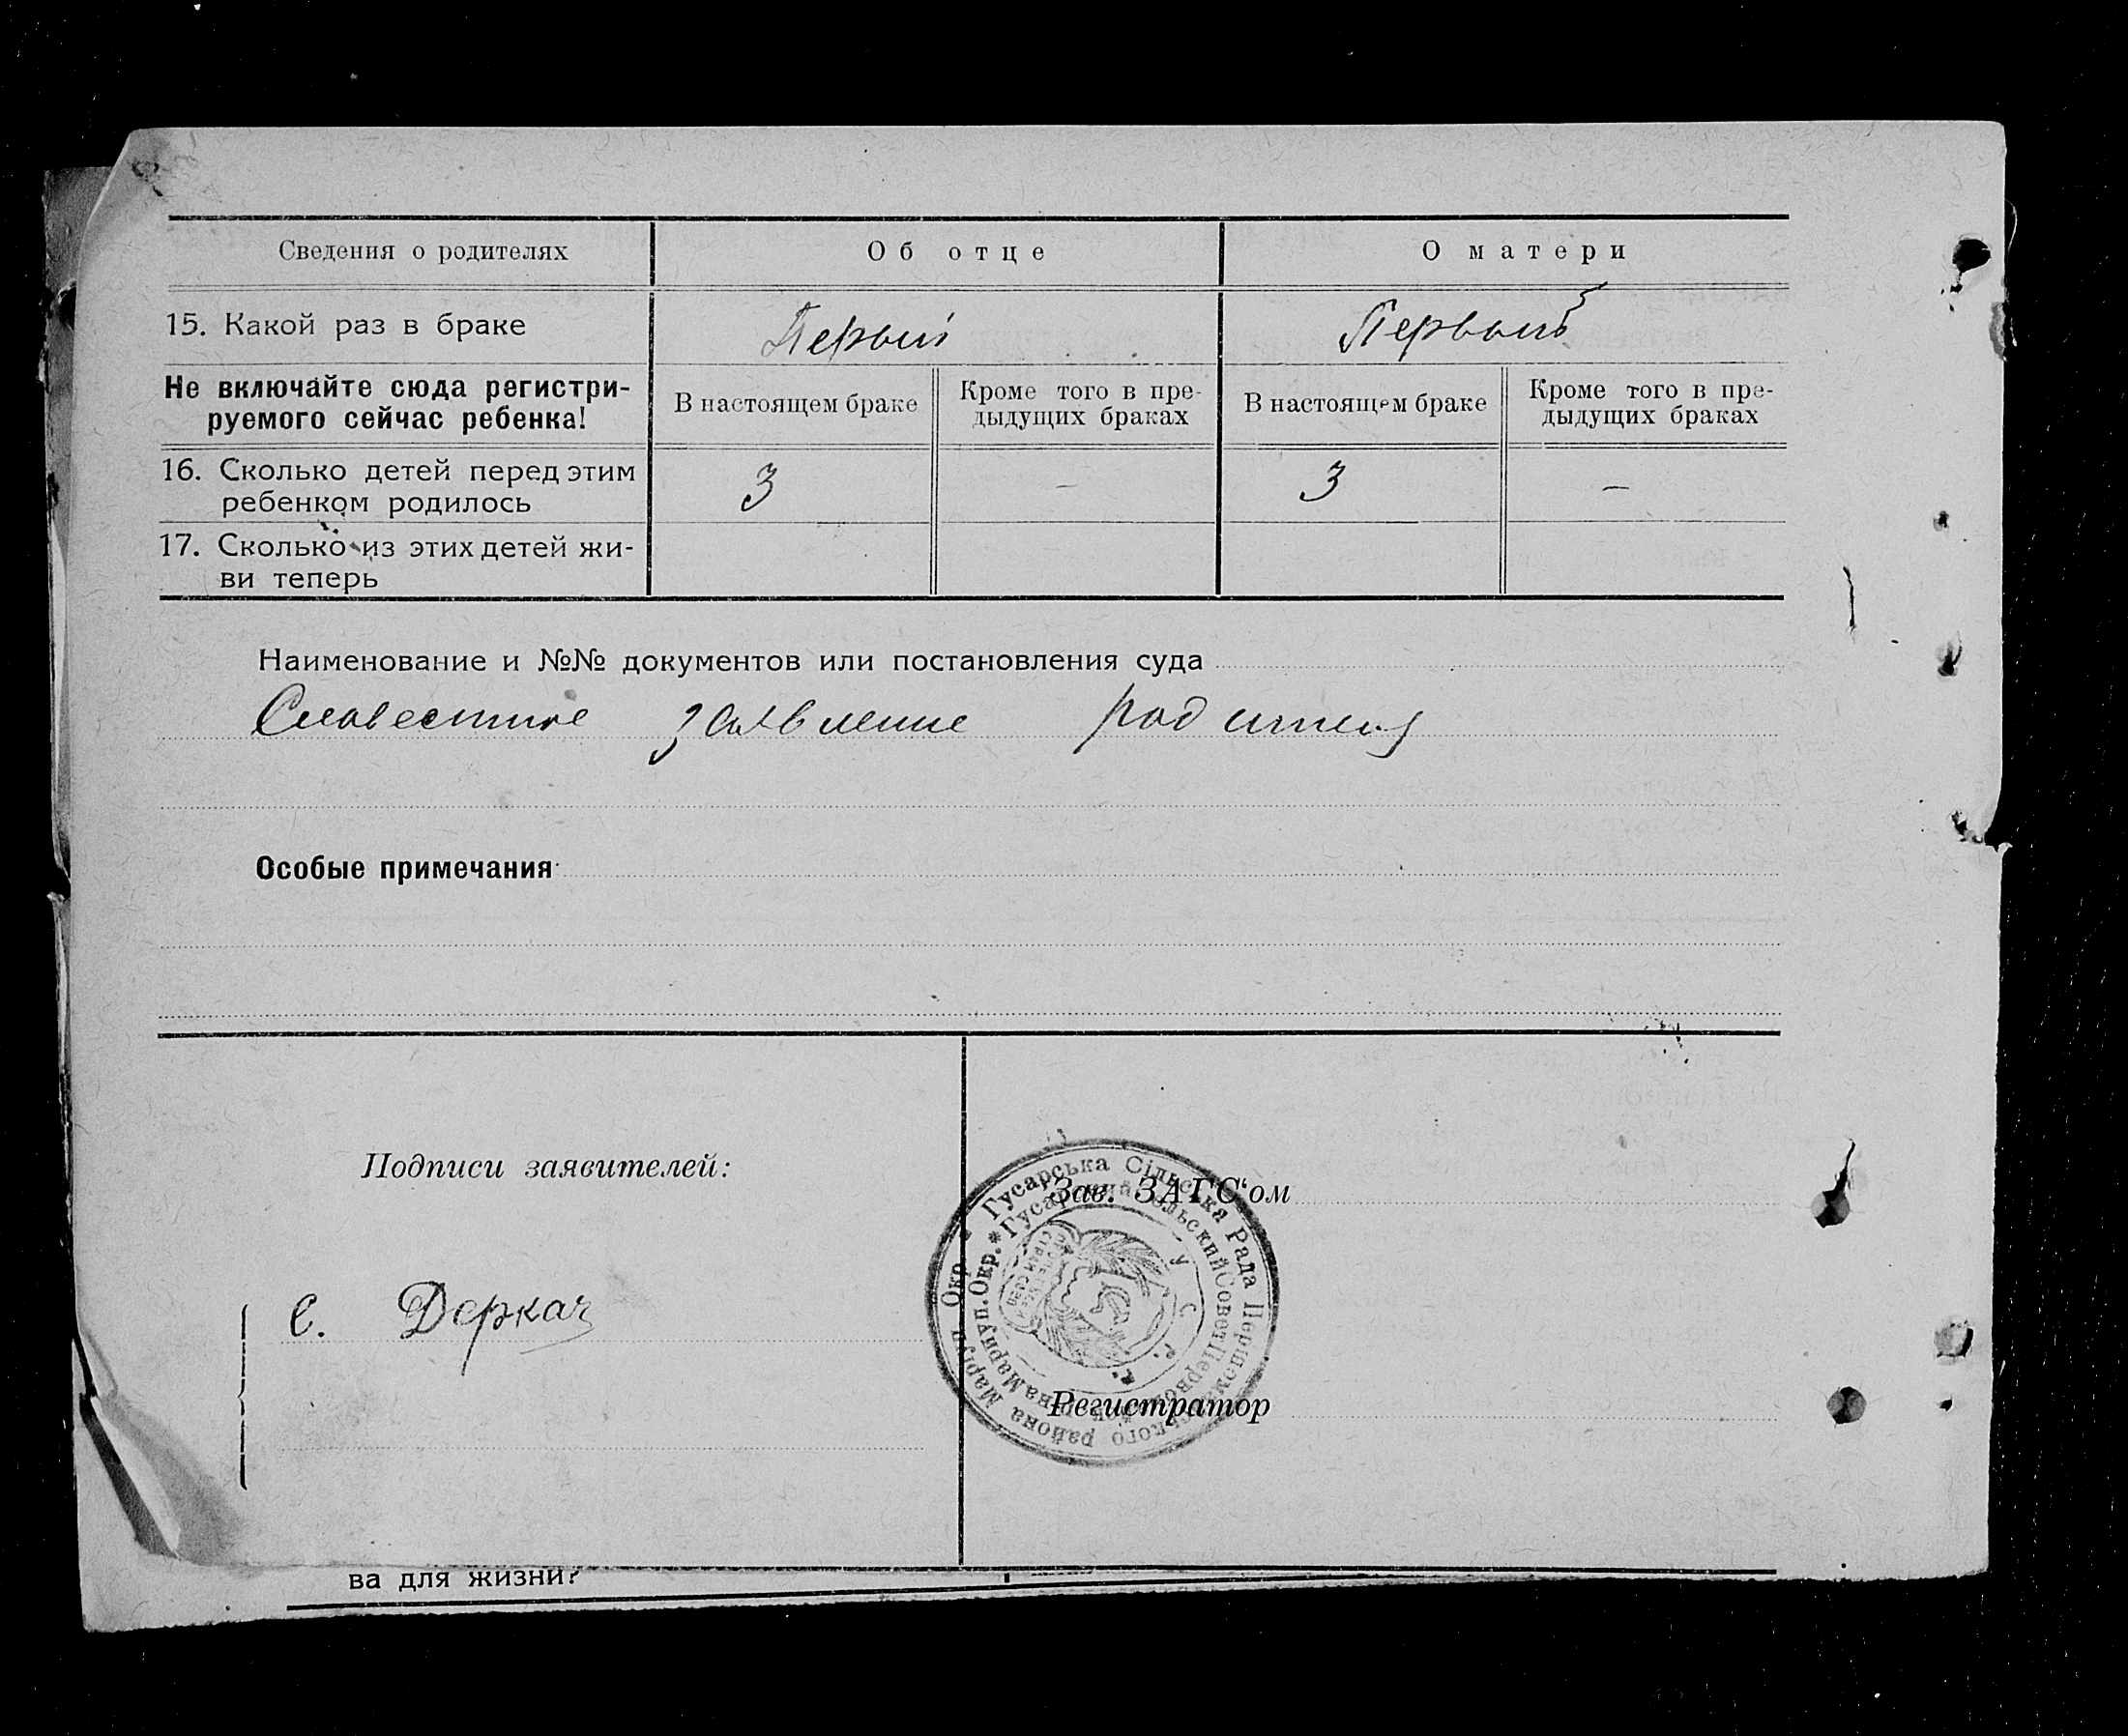 Сведения о родителях Об отце О матери
15. Какой раз в браке Первый Первый
Не включайте сюда регистри-
руемого сейчас ребенка!
В настоящем браке Кроме того в пре-
дыдущих браках
В настоящем браке Кроме того в пре-
дыдущих браках
16. Сколько детей перед этим
ребенком родилось 3 — 3 —
17. Сколько из этих детей жи-
ви теперь
Наименование и №№ документов или постановления суда
Словестное заявление родителя
Особые примечания
Подписи заявителей:
С. Деркач
Зав. ЗАГС“ом
Регистратор
Гусарська Сільська Рада Першомайського района Маріуп. Окр.
Гусарский Сельский Совет Района Мариуп. Окр.
У. С. Р. Р.
ва для жизни?